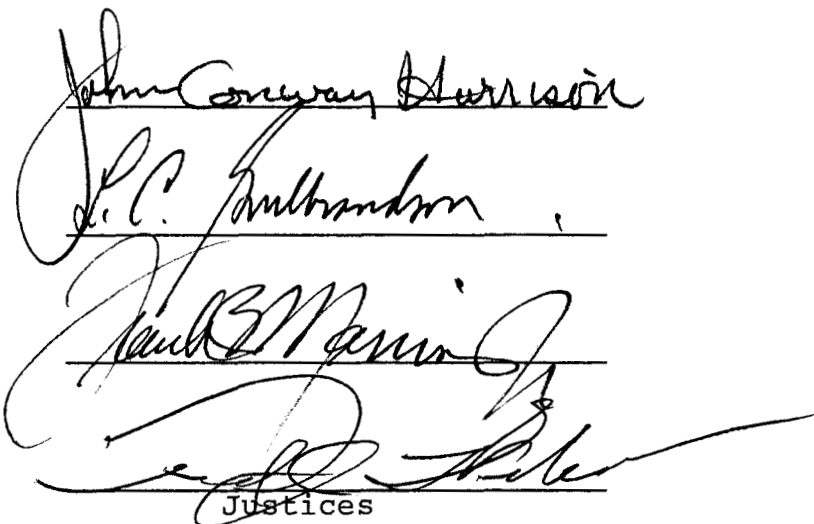 John Conway Harrison
L. C. Gulbrandson
Frank B. Morrison Jr.
Justices